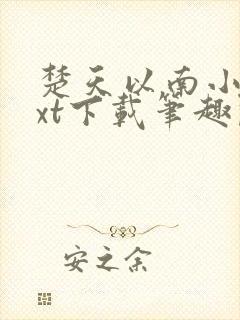 楚天以南小
xt下载笔趣
安之余